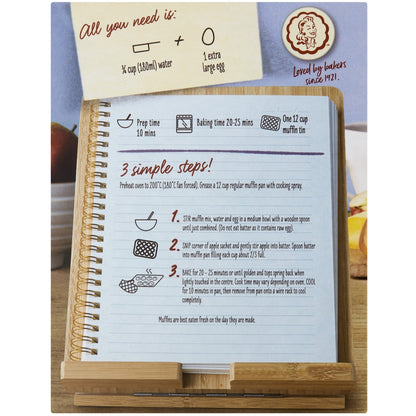 All you need is:
¾ cup (180ml) water
+
1 extra
large egg
Loved by bakers
since 1921.
Prep time
10 mins
Baking time 20-25 mins
One 12 cup
muffin tin
3 simple steps!
Preheat oven to 200°C (180°C fan forced). Grease a 12 cup regular muffin pan with cooking spray.
1. STIR muffin mix, water and egg in a medium bowl with a wooden spoon
until just combined. (Do not eat batter as it contains raw egg).
2. SNIP corner of apple sachet and gently stir apple into batter. Spoon batter
into muffin pan filling each cup about 2/3 full.
3. BAKE for 20 - 25 minutes or until golden and tops spring back when
lightly touched in the centre. Cook time may vary depending on oven. COOL
for 10 minutes in pan, then remove from pan onto a wire rack to cool
completely.
Muffins are best eaten fresh on the day they are made.